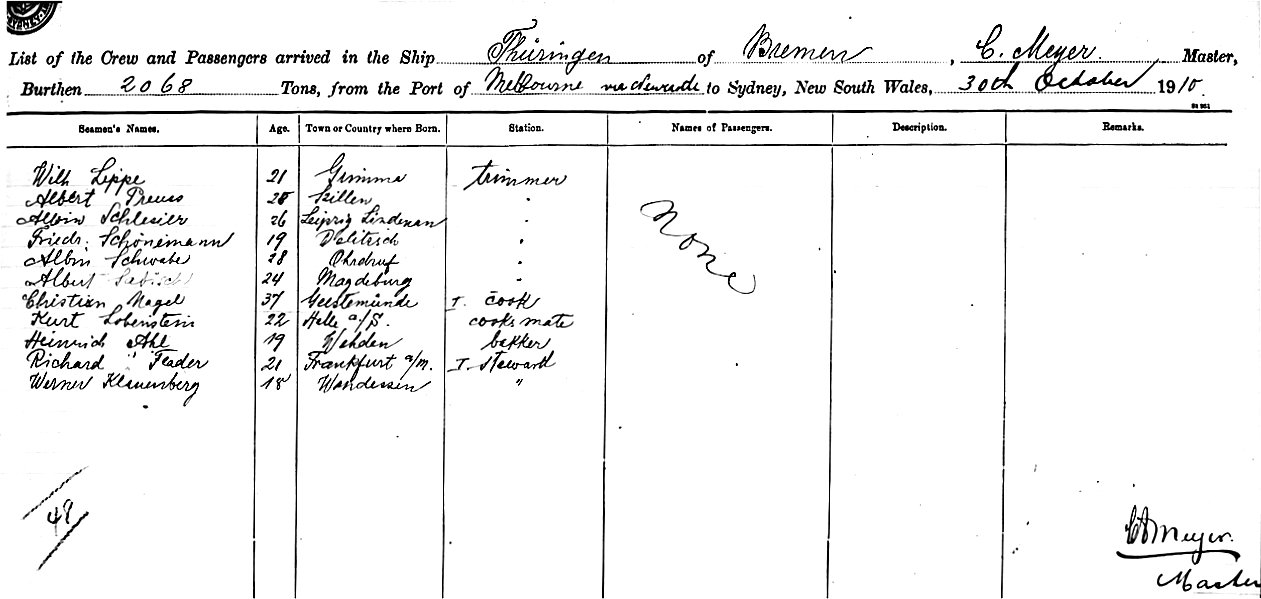 List of the Crew and Passengers arrived in the Ship Thüringen of Bremen, C. Meyer. Master,
Burthen 2068 Tons, from the Port of Melbourne via Newcastle to Sydney, New South Wales, 30th October 1910.
Seamen's Names. Age. Town or Country where Born. Station. Names of Passengers. Description. Remarks.
Wilh Lippe 21 Grimma trimmer
Albert Preuss 28 Szillen "
Albin Schlesier 26 Leipzig Lindenau "
Friedr. Schönemann 19 Delitzsch "
Albin Schwabe 28 Ohrdruf "
Albert 24 Magdeburg "
Christian Nagel 37 Geestemünde I. cook
Kurt Lobenstein 22 Halle a/S. cooks mate
Heinrich Ahl 19 Wehden bakker
Richard Flader 21 Frankfurt a/m. I. steward
Werner Klauenberg 18 "
None
48
Meyer.
Master